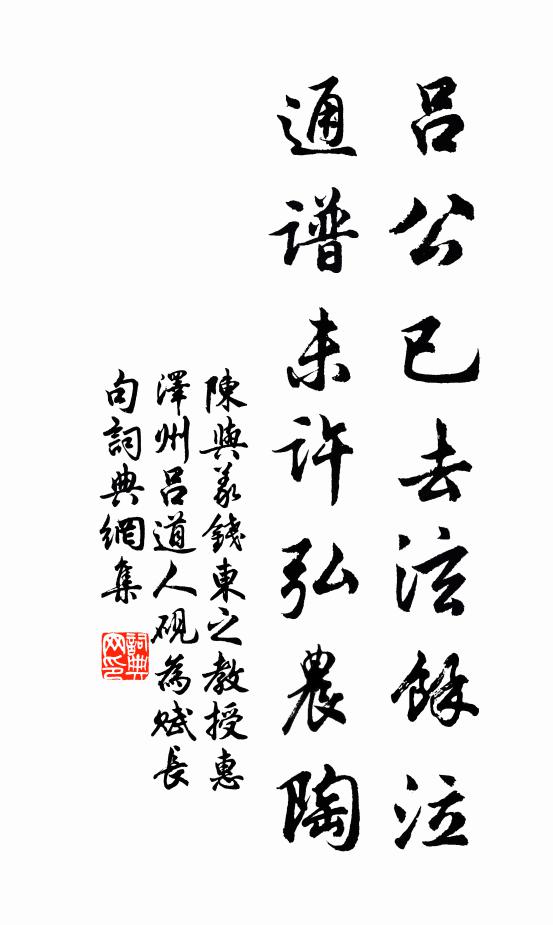 呂公已去泫餘泣
通譜未許弘農陶
陳與義錢東之教授惠
澤州呂道人硯為賦長
句詞典網集
詞典
网印